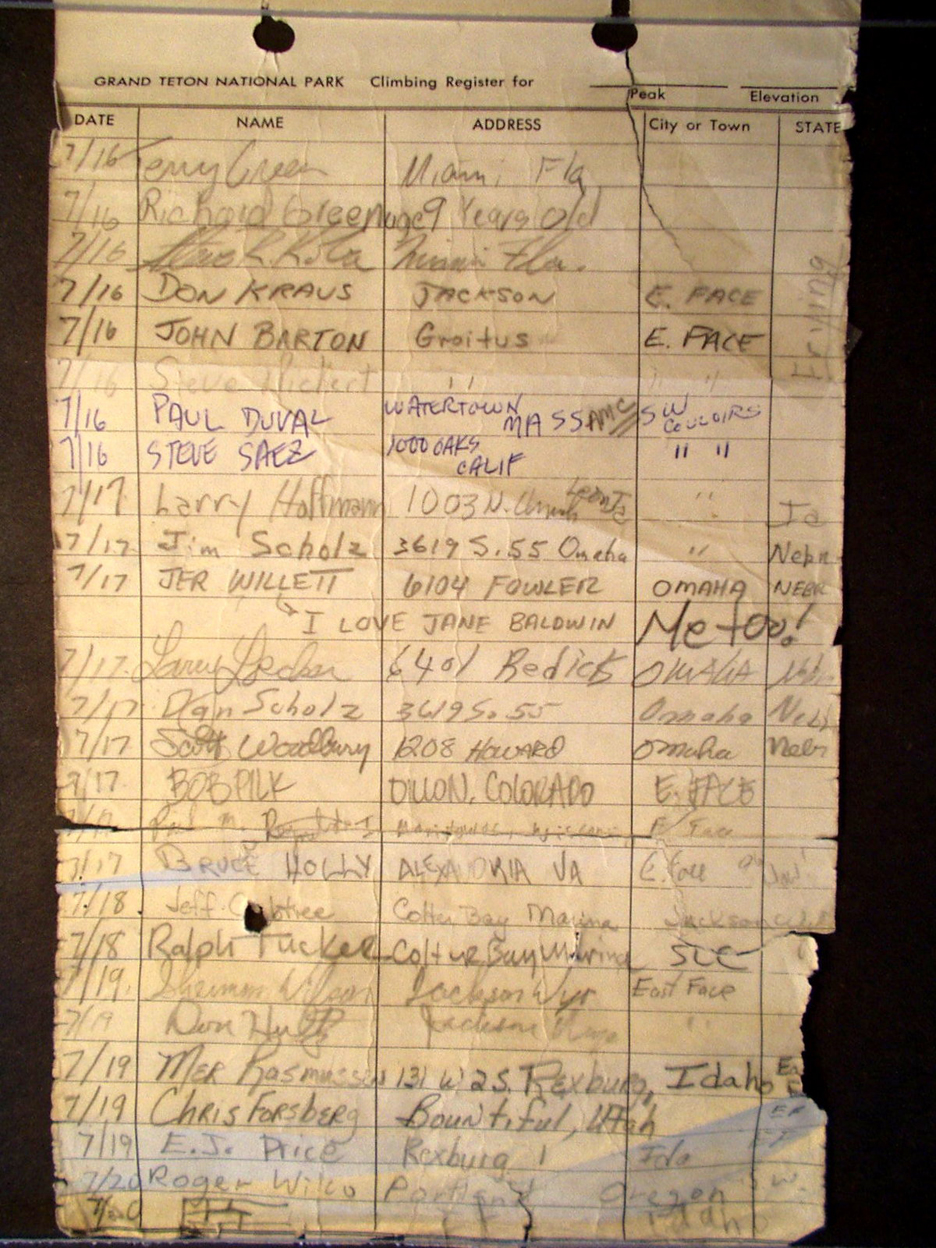 GRAND TETON NATIONAL PARK Climbing Register for
Peak Elevation
DATE NAME ADDRESS City or Town STATE
7/16 Terry Green Miami, Fla
7/16 Richard Green age 9 Years old
7/16 Miami Fla.
7/16 DON KRAUS JACKSON E. FACE
7/16 JOHN BARTON Groitus E. FACE
7/16 Steve " " "
7/16 PAUL DUVAL WATERTOWN MASS AMC SW COULOIRS
7/16 STEVE SAEZ 1000 OAKS CALIF " "
7/17 Larry Hoffmann 1003 N. "
7/17 Jim Scholz 3619 S. 55 Omaha " Nebr
7/17 JER WILLETT 6104 FOWLER OMAHA NEBR
I LOVE JANE BALDWIN Me too!
7/17 Larry 6401 Redick OMAHA Nebr
7/17 Dan Scholz 3619 So. 55 Omaha Neb
7/17 Scott Woodbury 1208 HOWARD Omaha Nebr
7/17 BOB PILK DILLON, COLORADO E. FACE
Paul M. E. Face
7/17 BRUCE HOLLY ALEXANDRIA VA E. face
7/18 Jeff Crabtree Colter Bay Marina Jackson
7/18 Ralph Tucker Coltur Bay Marina SLC
7/19 Wilson Jackson Wyo East Face
7/19 Don Jackson Wyo "
7/19 MER Rasmussen 131 W 2 S. Rexburg, Idaho
7/19 CHRIS FORSBERG Bountiful, Utah
7/19 E.J. Price Rexburg Ida
7/20 Roger Wilco Portland Oregon S.W.
Idaho